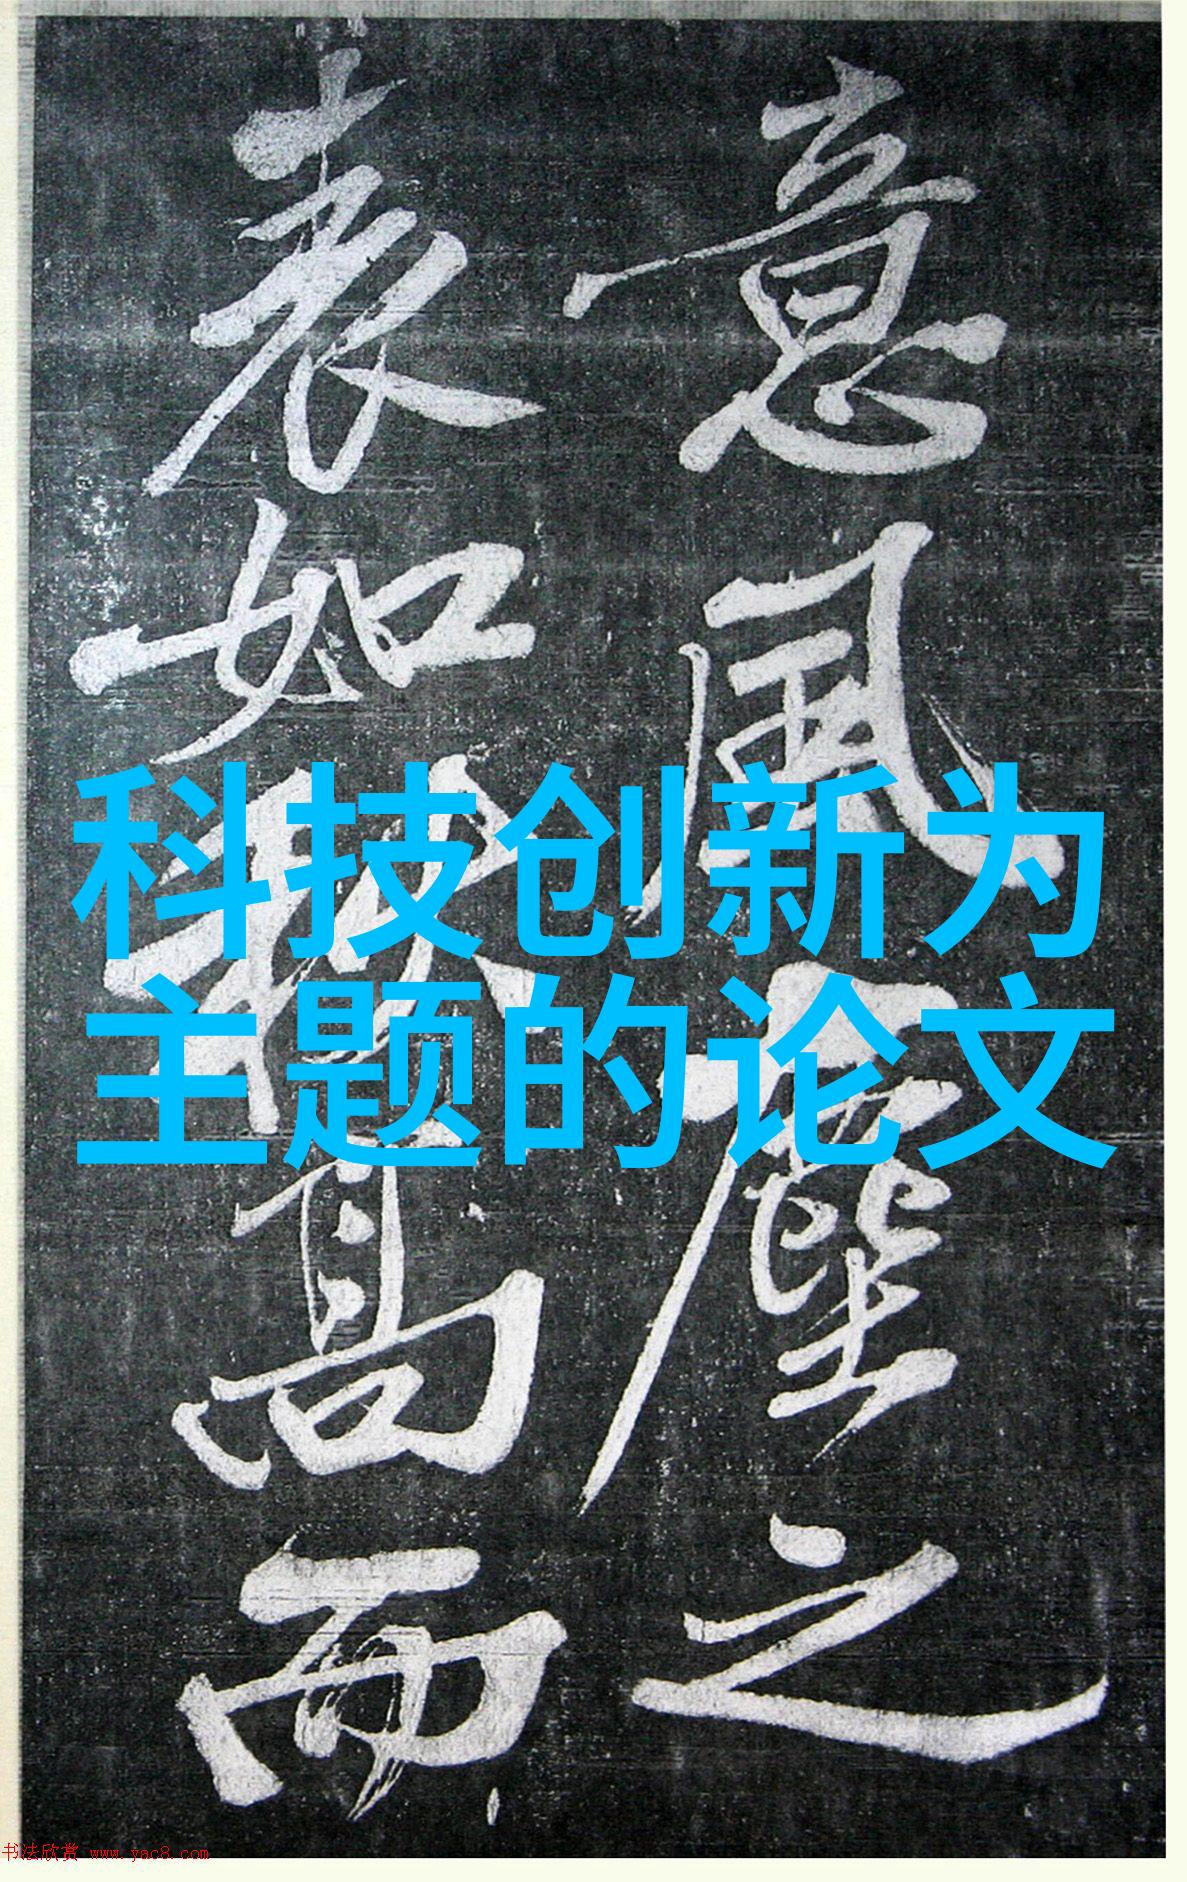 意風塵之
表如高而
科技创新为
主题的论文
书法欣赏 www.yac8.com